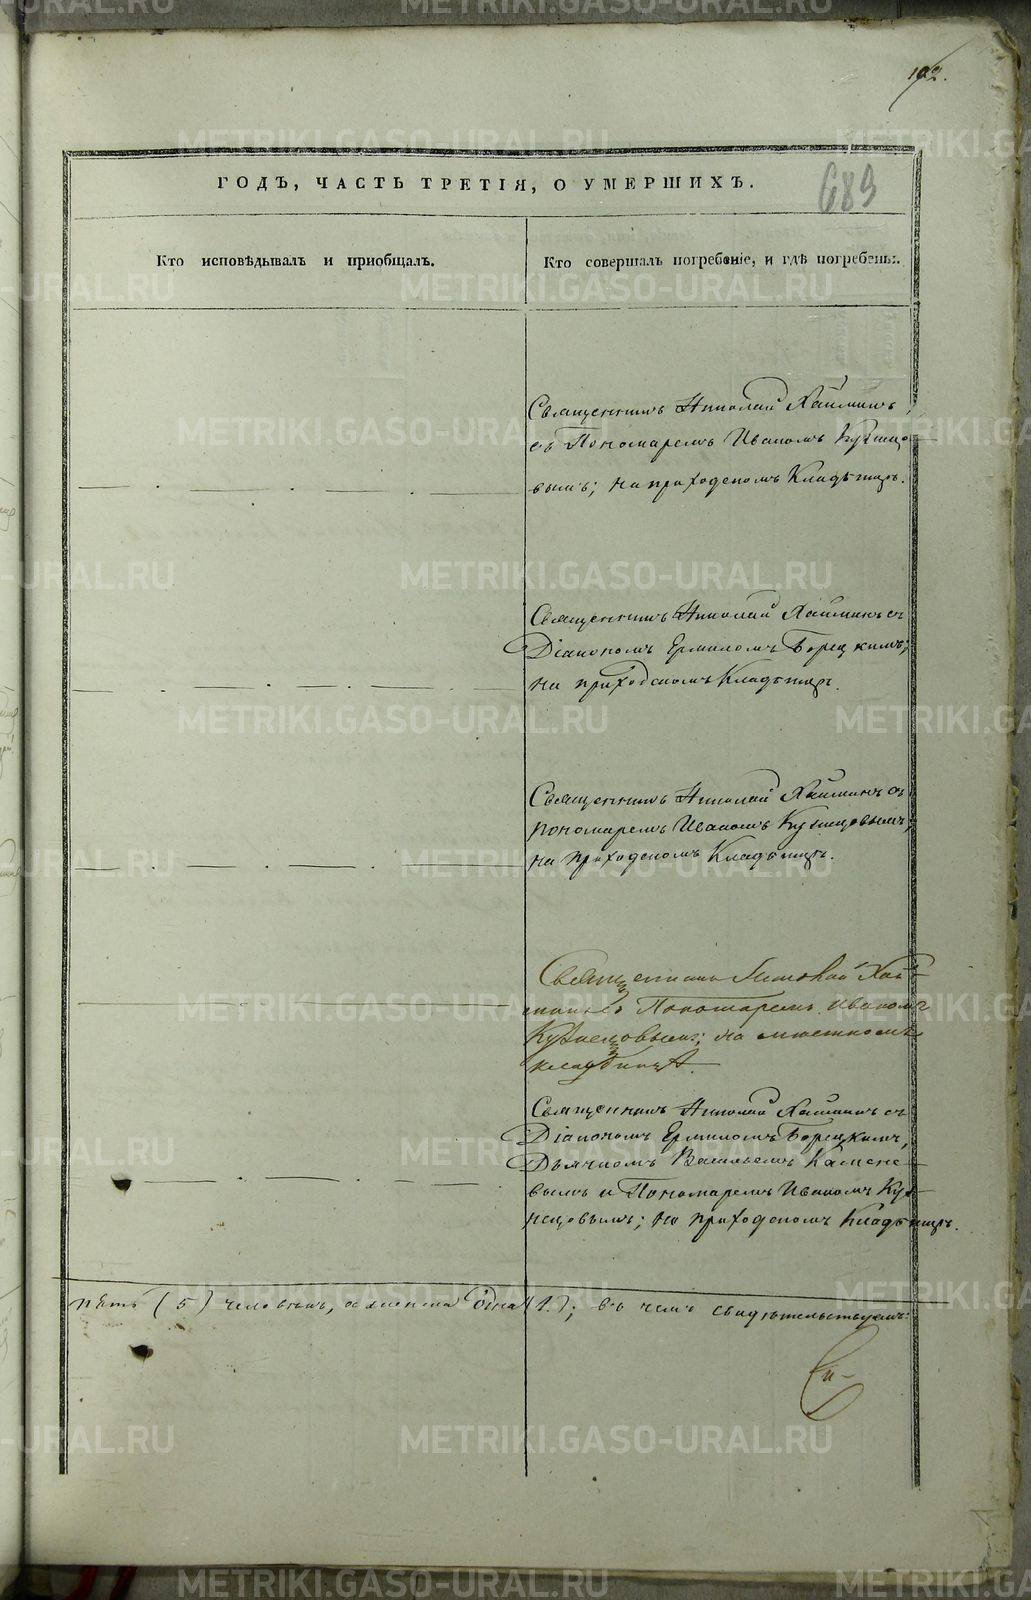 192.
689
ГОДЪ, ЧАСТЬ ТРЕТІЯ, О УМЕРШИХЪ.
Кто исповѣдывалъ и пріобщалъ.
Кто совершалъ погребеніе, и гдѣ погребены.
Священникъ Николай Хаймин
съ Пономаремъ Иваномъ Кузнецо
вымъ; на приходскомъ Кладбищѣ.
Священникъ Николай Хаймин съ
Діакономъ Ермиломъ Борецкимъ;
на приходскомъ Кладбищѣ.
Священникъ Николай Хаймин съ
пономаремъ Иваномъ Кузнецовымъ;
на приходскомъ Кладбищѣ.
Священникъ Николай Хай
съ Пономаремъ Иваномъ
Кузнецовымъ; на местномъ
кладбищѣ.
Священникъ Николай Хаймин съ
Діакономъ Ермиломъ Борецкимъ,
Дьячкомъ Васильемъ Камене
вымъ и Пономаремъ Иваномъ Куз
нецовымъ; на приходскомъ Кладбищѣ.
пять (5) человѣкъ, а женска одна (1.); въ чемъ свидѣтельствуемъ:
METRIKI.GASO-URAL.RU